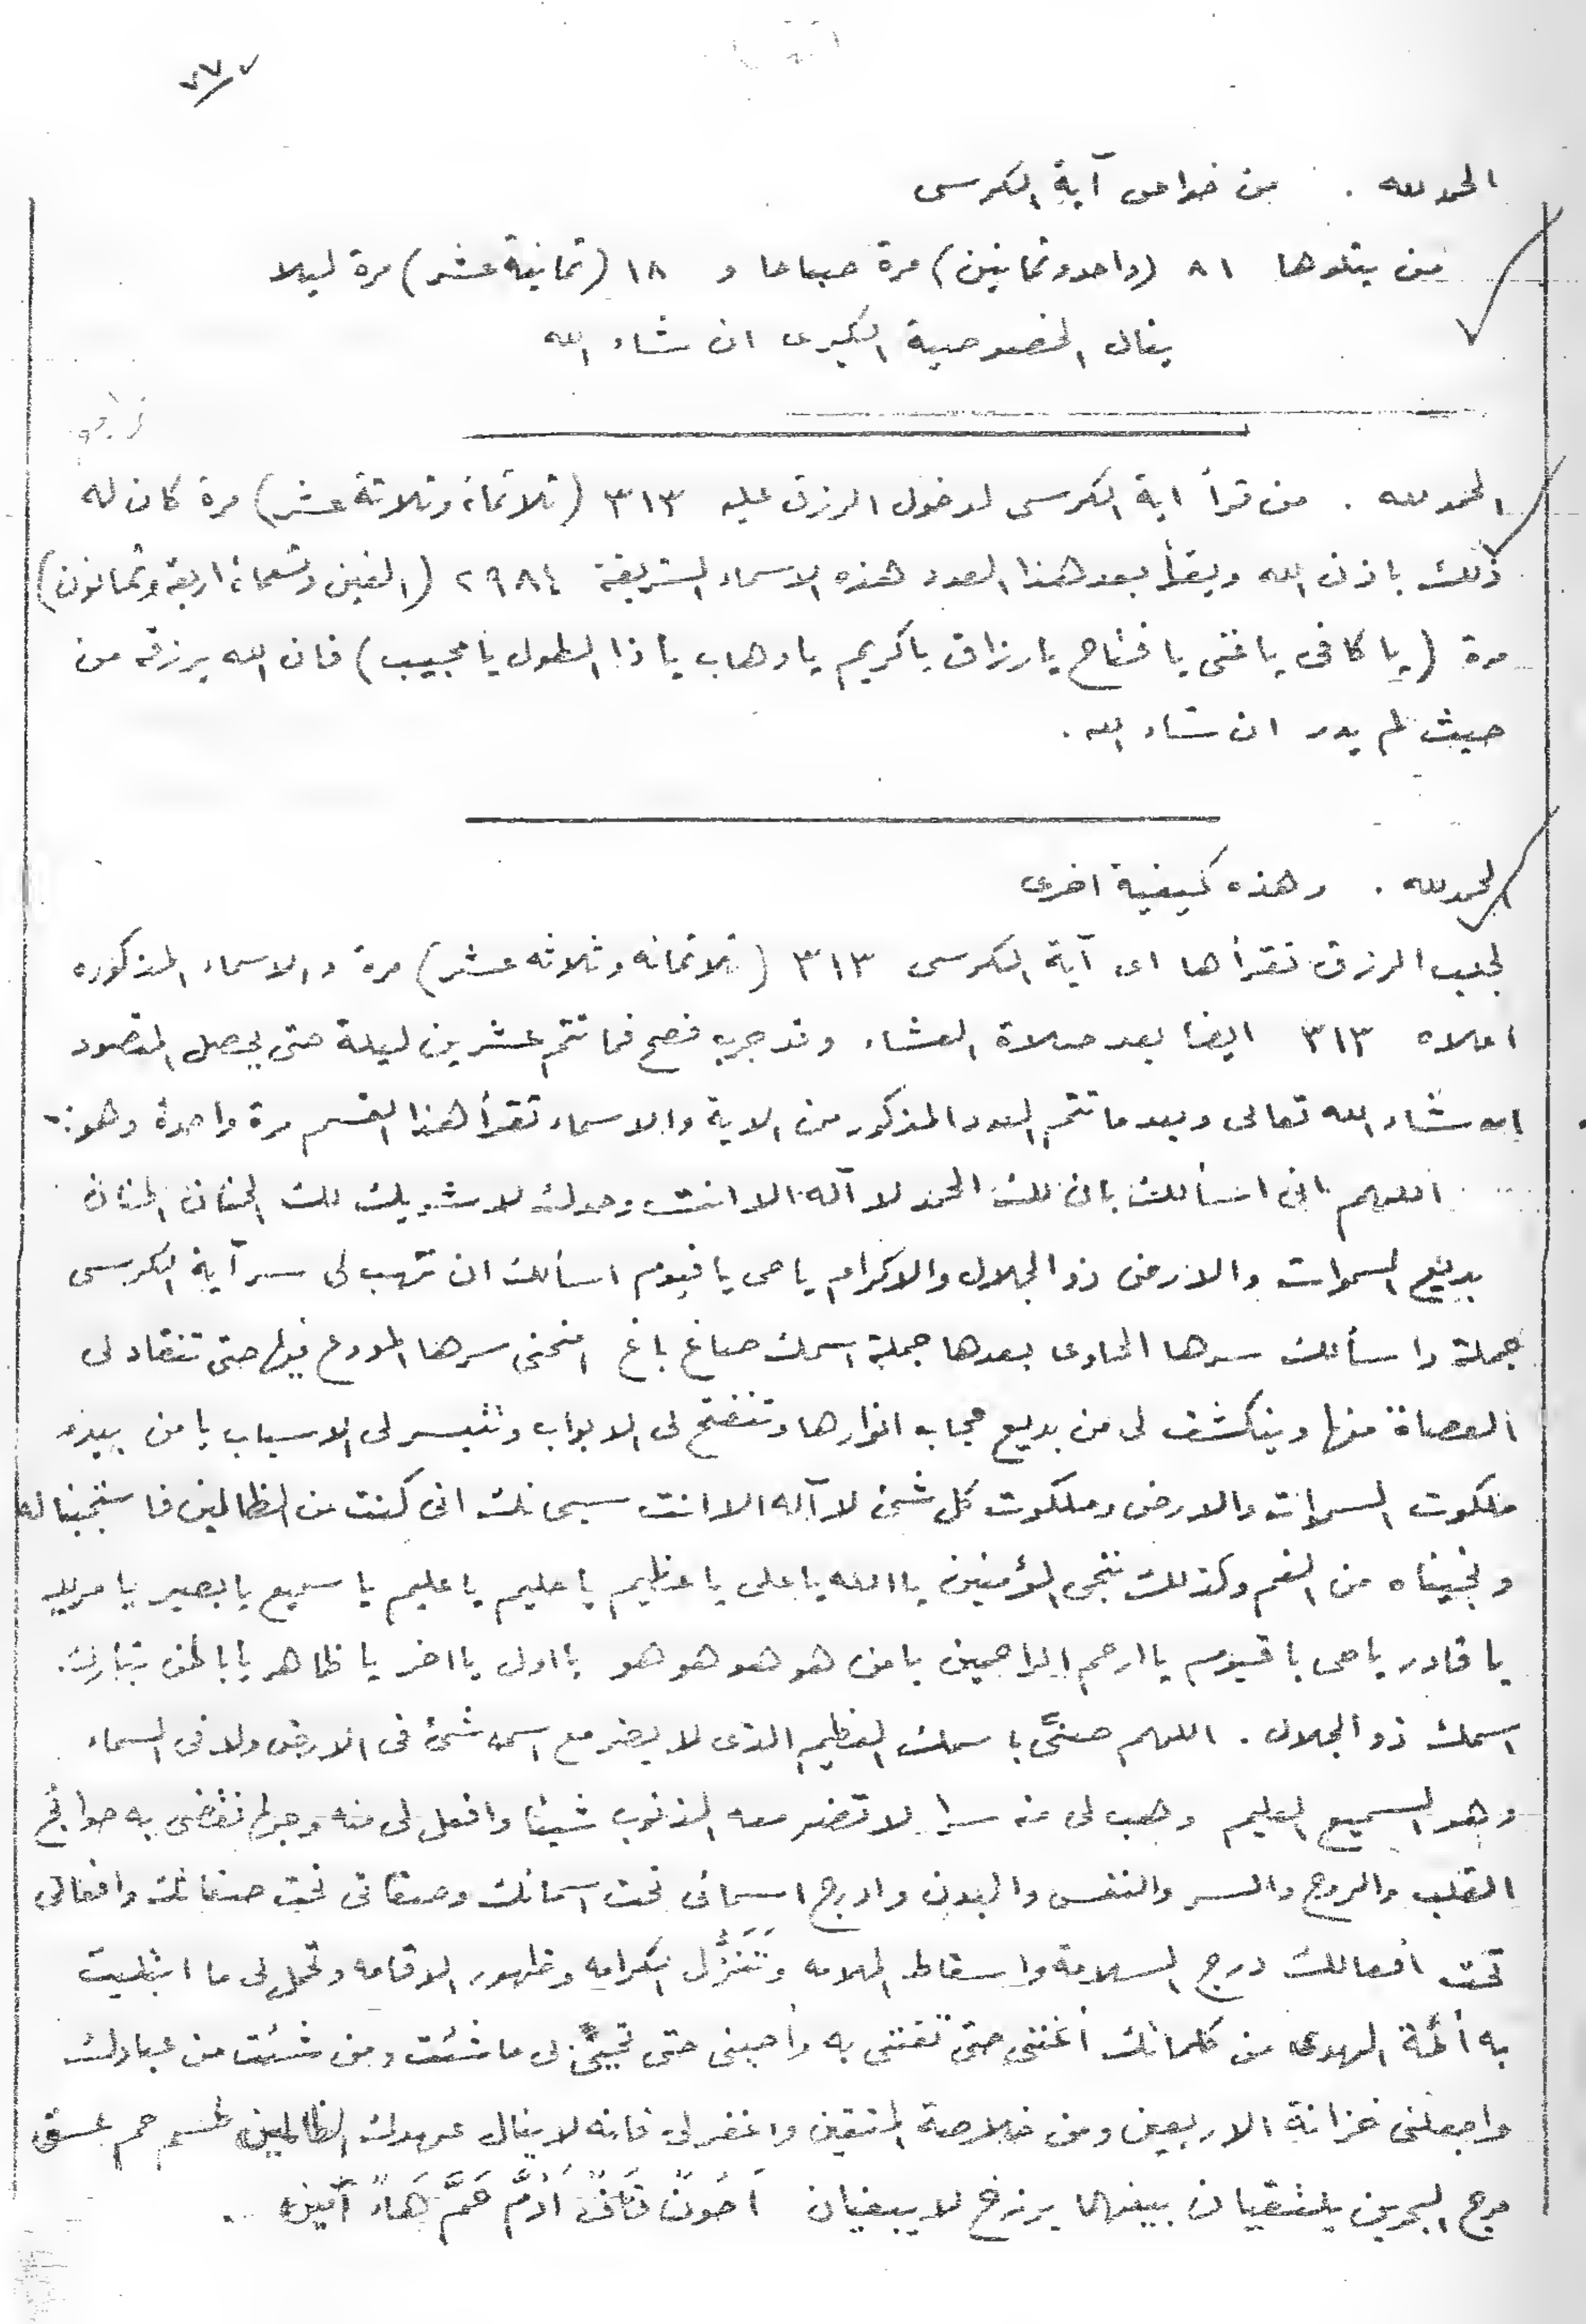 الحمد لله . من خواص آية الكرسى
من يتلوها ٨١ (واحد وثمانين) مرة صباحا و ١٨ (ثمانية عشر) مرة ليلا
ينال الخصوصية الكبرى ان شاء الله
الحمد لله . من قرأ اية الكرسى لدخول الرزق عليه ٣١٣ (ثلاثمائة وثلاثة عشر) مرة كان له
ذلك باذن الله ويقرأ بعد هذا العدد هذه الاسماء الشريفة ٢٩٨٤ (الفين وتسعمائة اربعة وثمانون)
مرة (يا كافى يا غنى يا فتاح يا رزاق يا كريم يا وهاب يا ذا الطول يا مجيب) فان الله يرزقه من
حيث لم يدر ان شاء الله .
الحمد لله . وهذه كيفية اخرى
لجلب الرزق تقرأها اى آية الكرسى ٣١٣ (ثلاثمائه وثلاثه عشر) مرة والاسماء المذكوره
اعلاه ٣١٣ ايضا بعد صلاة العشاء وقد جرب فصح فما تتم عشرين ليلة حتى يحصل المقصود
ان شاء الله تعالى وبعد ما تتم العدد المذكور من الاية والاسماء تقرأ هذا القسم مرة واحدة وهو:-
اللهم انى اسألك بان لك الحمد لا آله الا انت وحدك لا شريك لك الحنان المنان
بديع السموات والارض ذو الجلال والاكرام يا حى يا قيوم اسألك ان تهب لى سر آية الكرسى
جملة واسألك سرها الحاوى بعدها جملة اسمك صاغ باغ امنحنى سرها المودع فيها حتى تنقاد لى
العصاة منها وينكشف لى من بديع حجاب انوارها وتنفتح لى الابواب وتتيسر لى الاسباب يا من بيده
ملكوت السموات والارض وملكوت كل شئ لا آله الا انت سبحانك انى كنت من الظالمين فاستجبنا له
ونجيناه من الغم وكذلك ننجى المؤمنين يا الله يا على يا عظيم يا حليم يا عليم يا سميع يا بصير يا مريد
يا قادر يا حى يا قيوم يا ارحم الراحمين يا من هو هو هو هو يا اول يا اخر يا ظاهر يا باطن تبارك
اسمك ذو الجلال . اللهم صفنى باسمك العظيم الذى لا يضر مع اسمه شئ فى الارض ولا فى السماء
وهو السميع العليم وهب لى منه سرا لا تضر معه الذنوب شيئا وافعل لى منه وجها تقضى به حوائج
القلب والروح والسر والنفس والبدن وادرج اسمائى تحت اسمائك وصفاتى تحت صفاتك وافعالى
تحت أفعالك درج السلامة واسقاط الملامه وتَنَزُّل الكرامه وظهور الاقامه وتحمل لى ما ابتليت
به أئمة الهدى من كلماتك أغننى حتى تغنى به وأحينى حتى تحيى لى ما شئت ومن شئت من عبادك
واجعلنى خزانة الاربعين ومن خلاصة المتقين واغفر لى فانه لا ينال عهدك الظالمين طسم حم عسق
مرج البحرين يلتقيان بينهما برزخ لا يبغيان أَحُونٌ قَافٌ أَدُمَّ حَمَّ هَاءٌ آمين .